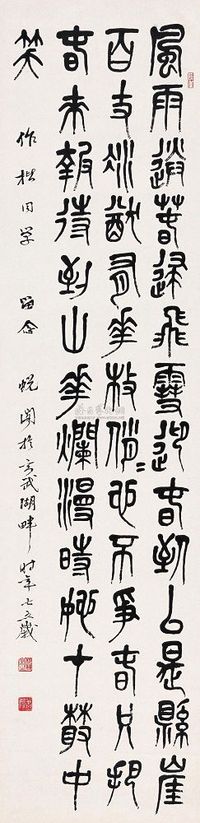 風雨送春歸飛雪迎春到已是縣崖
百丈冰猷有華枝俏〻也不爭春只把
春來報待到山華爛漫時她在叢中
笑
同学 留念 於玄武湖畔 时年七五歲